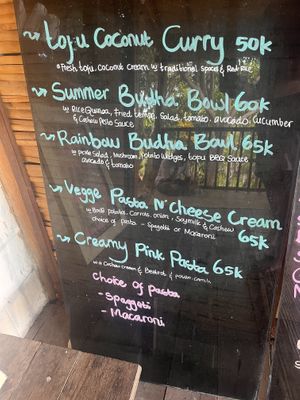 Tofu Coconut Curry 50K
*Fresh tofu, coconut cream w traditional spaces & Red Rice
Summer Budha Bowl 60K
w Rice Quinoa, Fried tempe, Salad, tomato, avocado, Cucumber
& Cashew Pesto Sauce
Rainbow Budha Bowl 65K
w pickle Salad, Mushroom, Potato Wedges, topu BBQ Sauce
avocado & tomato
Vegge Pasta N' Cheese Cream
w Base potato, Carrots, onion, Soymilk & Cashew
choice of pasta - Spagetti or Macaroni
65K
Creamy Pink Pasta 65K
w Cashew cream & Beetrot &
Choice of Pasta
- Spaggeti
- Macaroni